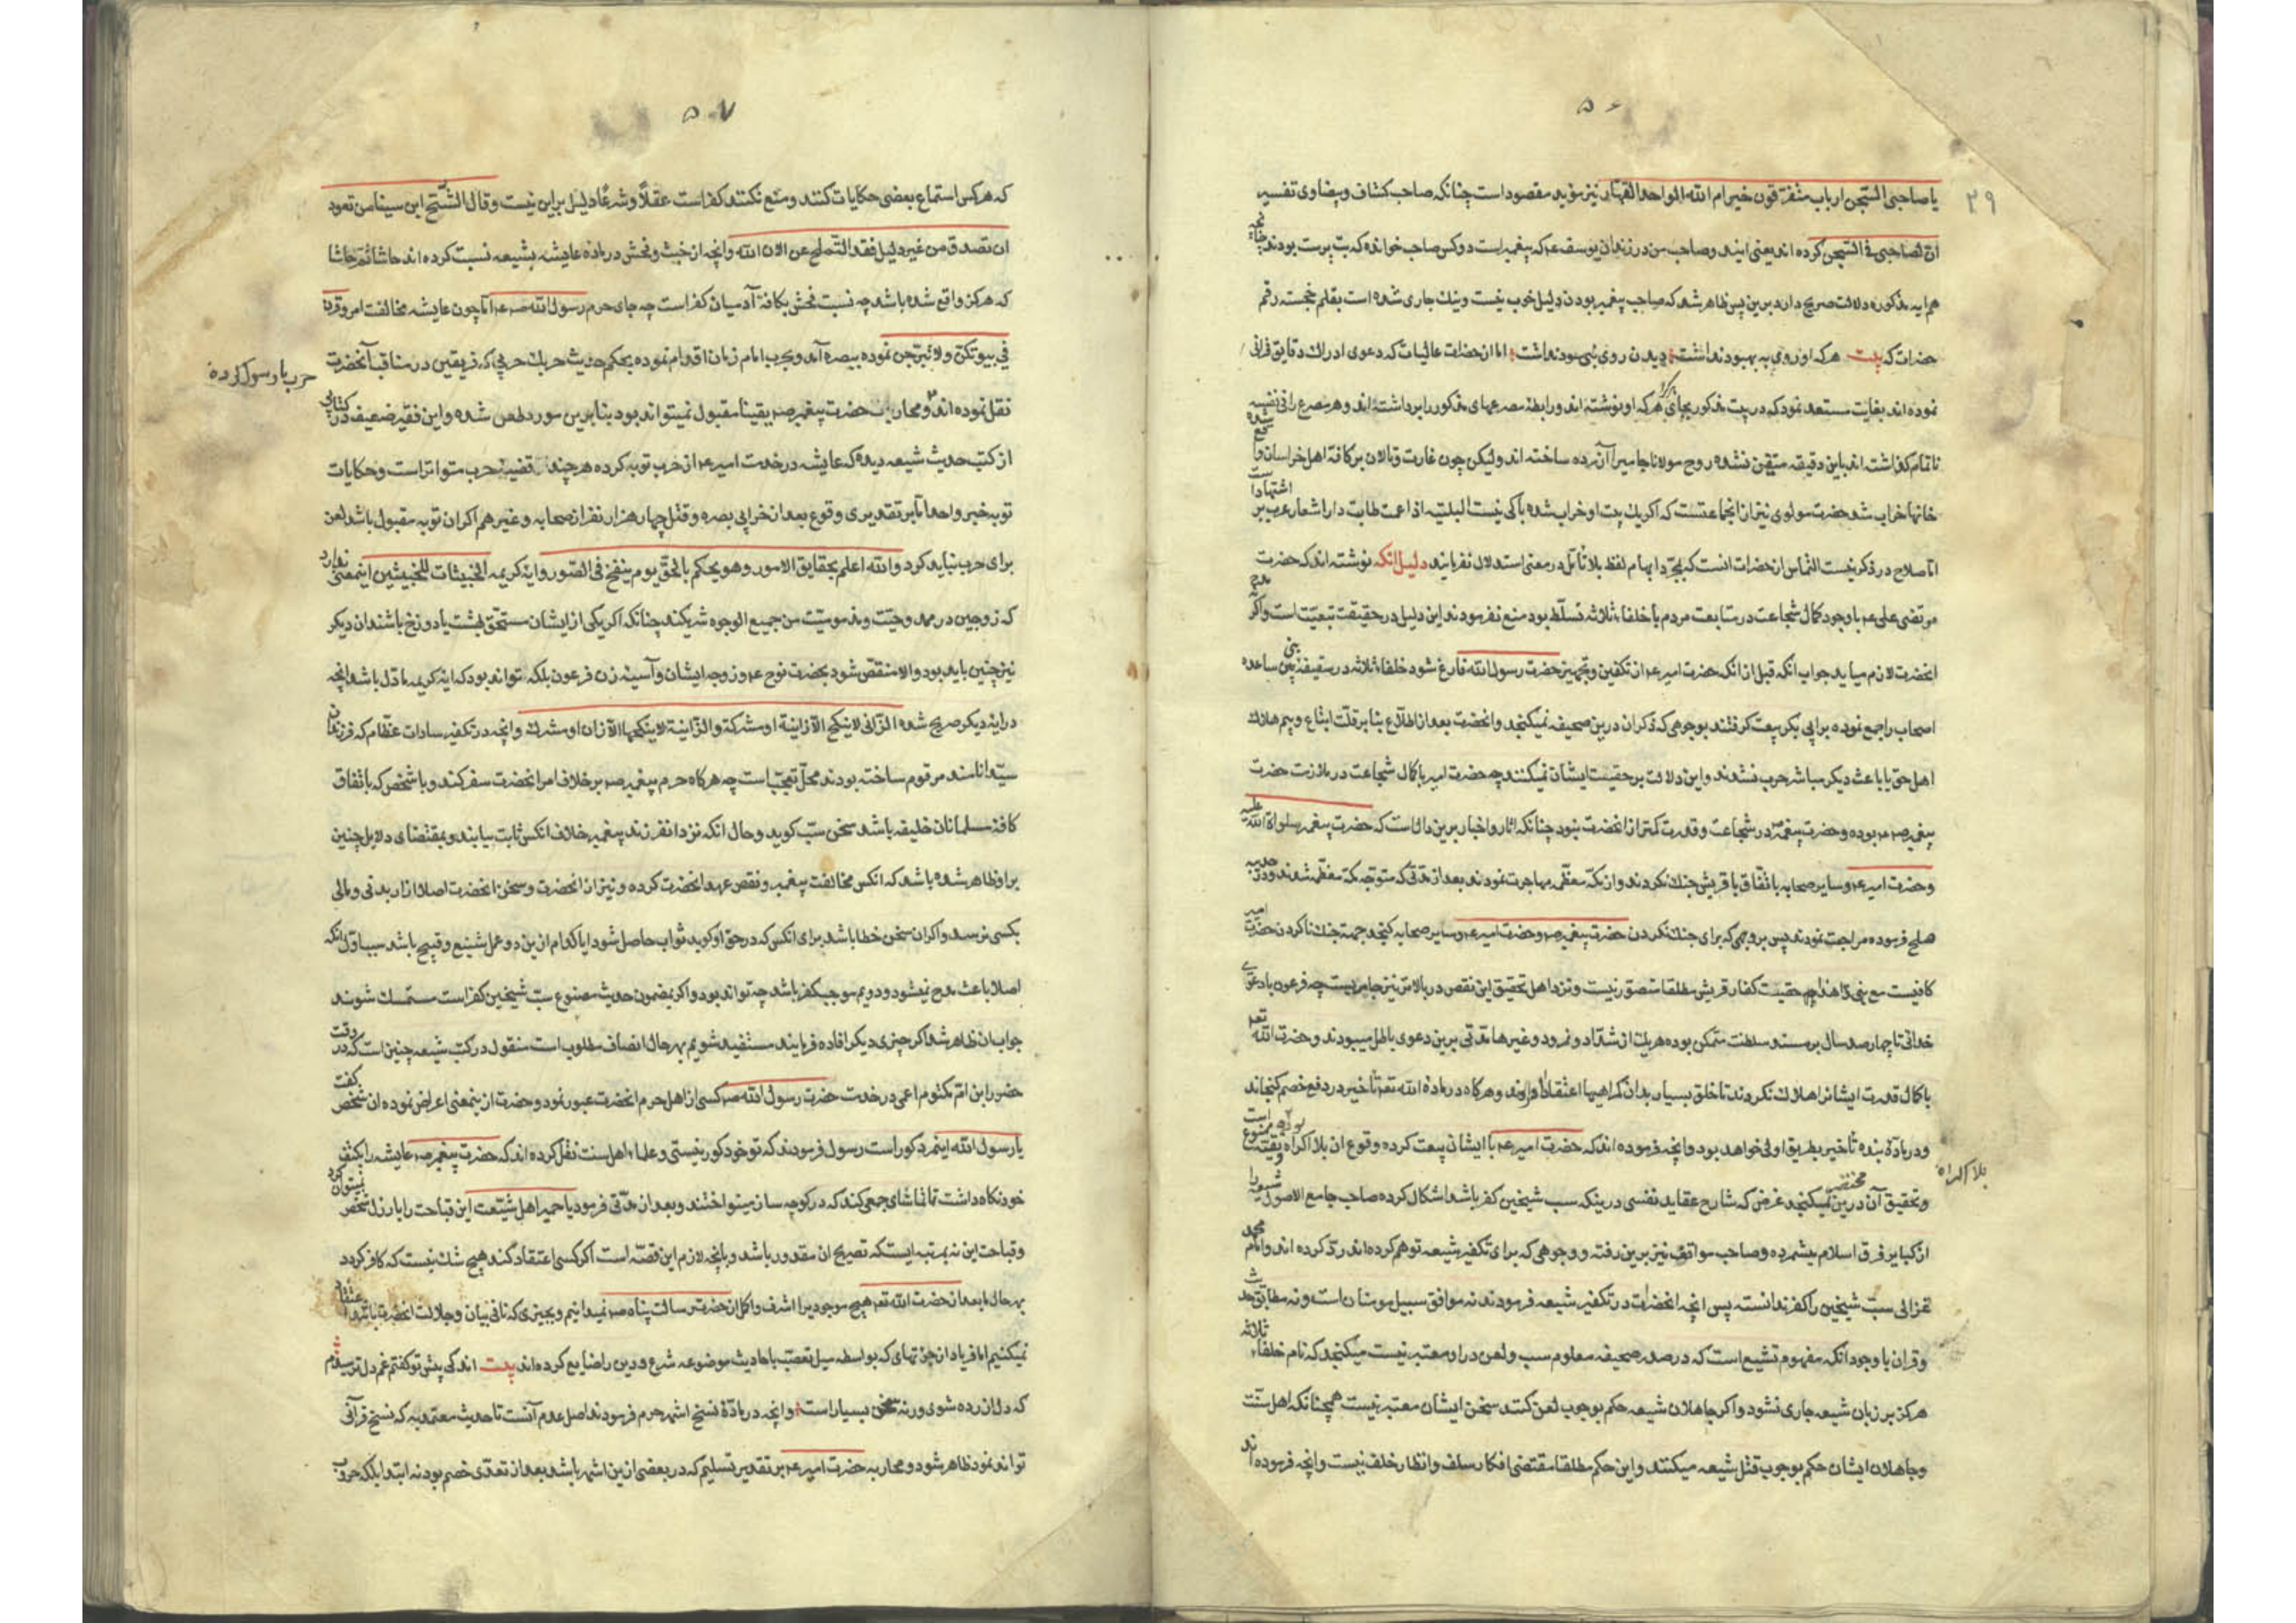 ۵۶
۲۹
یا صاحبی السّجن ارباب متفرّقون خیر ام الله الواحد القهّار نیز مؤید مقصود است چنانکه صاحب کشاف و بیضاوی تفسیر
ان بصاحبی فی السّجن کرده اند یعنی ایند و صاحب من در زندان یوسف عم که پیغمبر است دو کس صاحب خوانده که بت پرست بودند چنانچه
هم ایه مذکوره دلالت صریح دارد برین پس ظاهر شد که صاحب پیغمبر بودن دلیل خوب نیست و نیک جاری شده است بقلم خجسته رقم
حضرات که بیت هر که او روی به بهبود نداشت دیدن روی نبی سود نداشت اما از حضرات عالیات که دعوی ادراک دقایق قرانی
نموده اند بغایت مستبعد نمود که در بیت مذکور بجای هر کرا هر که او نوشته اند و رابطهٔ مصرعهای مذکور را برداشته اند و هر مصرع را فی نفسه
ناتمام گذاشته اند باین دقیقه متیقّن نشده روح مولانا جامی را آزرده ساخته اند ولیکن چون غارت و تالان بر کافهٔ اهل خراسان واقع شده
خانها خراب شد حضرت مولوی نیز از انجماعتست که اکر یک بیت او خراب شده باکی نیست البلیّه اذا عمت طابت در اشعار عرب بر اشتهاد است
امّا صلاح در ذکر نیست التماس از حضرات انست که بمجرّد ایهام لفظ بلا تأمل در معنی استدلال نفرمایند دلیل انکه نوشته اند که حضرت
مرتضی علی عم با وجود کمال شجاعت در متابعت مردم با خلفاء ثلاثه تسلّط بود منع نفرمودند این دلیل در حقیقت تبعیّت است و اکر
انحضرت لازم میاید جواب انکه قبل از انکه حضرت امیر عم از تکفین و تجهیز حضرت رسول الله فارغ شود خلفاء ثلاثه در سقیفه بنی ساعده
اصحاب را جمع نموده برابی بکر بیعت کرفتند بوجوهی که ذکر ان درین صحیفه نمیکنجد و انحضرت بعد از اطلاع بنا بر قلّت اتباع و بیم هلاک
اهل حق یا باعث دیکر مباشر حرب نشدند و این دلالت بر حقیّت ایشان نمیکند چه حضرت امیر با کمال شجاعت در ملازمت حضرت
پیغمبر صم بوده و حضرت پیغمبر در شجاعت و قدرت کمتر از انحضرت نبود چنانکه اثار و اخبار برین دالّ است که حضرت پیغمبر صلوات الله علیه
و حضرت امیر عم و سایر صحابه باتّفاق با قریش جنک نکردند و از مکّه معظّمه مهاجرت نمودند بعد از مدّتی که متوجه مکّه معظّمه شدند و در حدیبیه
صلح فرموده مراجعت نمودند پس بر وجهی که برای جنک نکردن حضرت پیغمبر صم و حضرت امیر عم و سایر صحابه کنجد جهت جنک ناکردن حضرت امیر
کافیست مع شیٔ زاید حقیّت کفار قریش مطلقا متصوّر نیست و نزد اهل تحقیق این نقص در بالاتر نیز جاریست چه فرعون با دعوی
خدائی تا چهار صد سال بر مسند سلطنت متمکن بوده هر یک از شدّاد و نمرود و غیرها مدّتی برین دعوی باطل میبودند و حضرت الله تعم
با کمال قدرت ایشانرا هلاک نکردند تا خلق بسیار بدان کمراهیها اعتقاد آوردند و هرکاه در بادهٔ الله تعم تأخیر در دفع خصم کنجاند
و در بادهٔ بنده تأخیر بطریق اولی خواهد بود و انچه فرموده اند که حضرت امیر عم با ایشان بیعت کرده وقوع ان بلا اکراه و تقیّه ممنوع است
بلا اکراه
و تحقیق آن درین مختصر نمیکنجد غرض که شارح عقاید نسفی درینکه سب شیخین کفر باشد اشکال کرده صاحب جامع الاصول شیعه را
از کبایر فرق اسلام میشمرده و صاحب مواقف نیز برین رفته و وجوهی که برای تکفیر شیعه توهم کرده اند ردّ کرده اند و امام محمد
غزالی سبّ شیخین را کفر ندانسته پس انچه انحضرات در تکفیر شیعه فرمودند نه موافق سبیل مومنان است و نه مطابق حدیث
و قران با وجود انکه مفهوم تشیع است که در صدر صحیفه معلوم سب و لعن در او معتبر نیست میکنجد که نام خلفاء ثلاثه
هرکز بر زبان شیعه جاری نشود و اکر جاهلان شیعه حکم بوجوب لعن کنند سخن ایشان معتبر نیست همچنانکه اهل سنّت
و جاهلان ایشان حکم بوجوب قتل شیعه میکنند و این حکم مطلقا مقتضی افکار سلف و انظار خلف نیست و انچه فرموده اند
۵۷
که هر کس استماع بعضی حکایات کنند و منع نکنند کفر است عقلاً و شرعاً دلیل براین نیست و قال الشّیخ ابن سینا من تعود
ان تصدق من غیر دلیل فقد انخلع عن الان الله و انچه از خبث و فحش در بادهٔ عایشه بشیعه نسبت کرده اند حاشا ثمّ حاشا
که هرکز واقع شده باشد چه نسبت فحش بکافهٔ آدمیان کفر است چه جای حرم رسول الله صم امّا چون عایشه مخالفت امر و قرن
فی بیوتکنّ ولا تبرّجن نموده ببصره آمد و بحرب امام زمان اقدام نموده بحکم حدیث حربک حربی که فریقین در مناقب آنحضرت
حرب با رسول کرده
نقل نموده اند و محاربت حضرت پیغمبر صم یقینا مقبول نمیتواند بود بنا برین مورد طعن شده و این فقیر ضعیف در کتابی
از کتب حدیث شیعه دیده که عایشه در خدمت امیر عم از حرب توبه کرده هر چند قضیهٔ حرب متواتر است و حکایات
توبه خبر واحد امّا بر تقدیری وقوع بعد از خرابی بصره و قتل چهار هزار نفر از صحابه و غیرهم اکر ان توبه مقبول باشد لعن
برای حرب نباید کرد والله اعلم بحقایق الامور و هو یحکم بالحقّ یوم ینفخ فی الصّور و ایهٔ کریمه الخبیثات للخبیثین اینمعنی ندارد
که زوجین در ممدوحیّت و مذمومیّت من جمیع الوجوه شریکند چنانکه اکر یکی از ایشان مستحقّ بهشت یا دوزخ باشند ان دیکر
نیز چنین باید بود و الا منتقض شود بحضرت نوح عم و زوجه ایشان و آسیه زن فرعون بلکه تواند بود که ایهٔ کریمه مأوّل باشد بانچه
در ایهٔ دیکر صریح شده الزّانی لا ینکح الّا زانیة او مشرکة والزّانیة لا ینکحها الّا زان او مشرک و انچه در تکفیر سادات عظام که فرزندان
سیّد انامند مرقوم ساخته بودند محلّ تعجّب است چه هرکاه حرم پیغمبر صم بر خلاف امر انحضرت سفر کند و با شخص که باتّفاق
کافهٔ مسلمانان خلیفه باشد سخن سبّ کوید و حال انکه نزد انفرزند پیغمبر خلاف انکس ثابت میآیند و بمقتضای دلایل چنین
براو ظاهر شده باشد که انکس مخالفت پیغمبر و نقض عهد انحضرت کرده و نیز از انحضرت و سخن انحضرت اصلا ازار بدنی و مالی
بکسی نرسد و اکر ان سخن خطا باشد برای انکس که در حق او کوید ثواب حاصل شود ایا کدام ازین دو عمل شنیع و قبیح باشد سبب اوّل انکه
اصلا باعث مدح نمیشود و دویم موجب کفر باشد چه تواند بود و اکر بمضمون حدیث مصنوع سبّ شیخین کفر است متمسک شوند
جواب ان ظاهر شد اکر چیزی دیکر افاده فرمایند مستفید شویم بهر حال انصاف مطلوب است منقول در کتب شیعه چنین است که در وقت
حضور ابن امّ مکتوم اعمی در خدمت حضرت رسول الله صم کسی از اهل حرم انحضرت عبور نمود و حضرت ازینمعنی اعراض نموده ان شخص کفت
یا رسول الله اینمرد کور است رسول فرمودند که تو خود کور نیستی و علماء اهل سنت نقل کرده اند که حضرت پیغمبر صم عایشه را بکتف
خود نکاه داشت تا تماشای جمعی کند که در کوچه ساز مینواختند و بعد از مدّتی فرمود یا حمیرا هل شبعت این قباحت را بارذل شخص نمیتوان کرد
و قباحت این نه بمرتبه ایستکه تصریح ان مقدور باشد و بانچه لازم این قصّه است اکر کسی اعتقاد کند هیچ شک نیست که کافر کردد
بهر حال ما بعد از حضرت الله تعم هیچ موجودیرا اشرف و اکمل از حضرت رسالت پناه صم نمیدانیم و بچیزی که نافی بیان و جلالت انحضرت باشد اعتقاد
نمیکنیم اما فریاد از چیزهای که بواسطه میل تعصّب باحادیث موضوعه شرع و دین را ضایع کرده اند بیت اندکی پیش تو گفتم غم دل ترسیدم
که دل آزرده شوی ورنه سخن بسیار است و انچه در بادهٔ نسخ اشهر حرم فرمودند اصل عدم آنست تا حدیث معتمد به که نسخ قرآنی
تواند نمود ظاهر شود و محاربه حضرت امیر عم بر تقدیر تسلیم که در بعضی ازین اشهر باشد بعد از تعدّی خصم بود نه ابتدا بلکه حروب